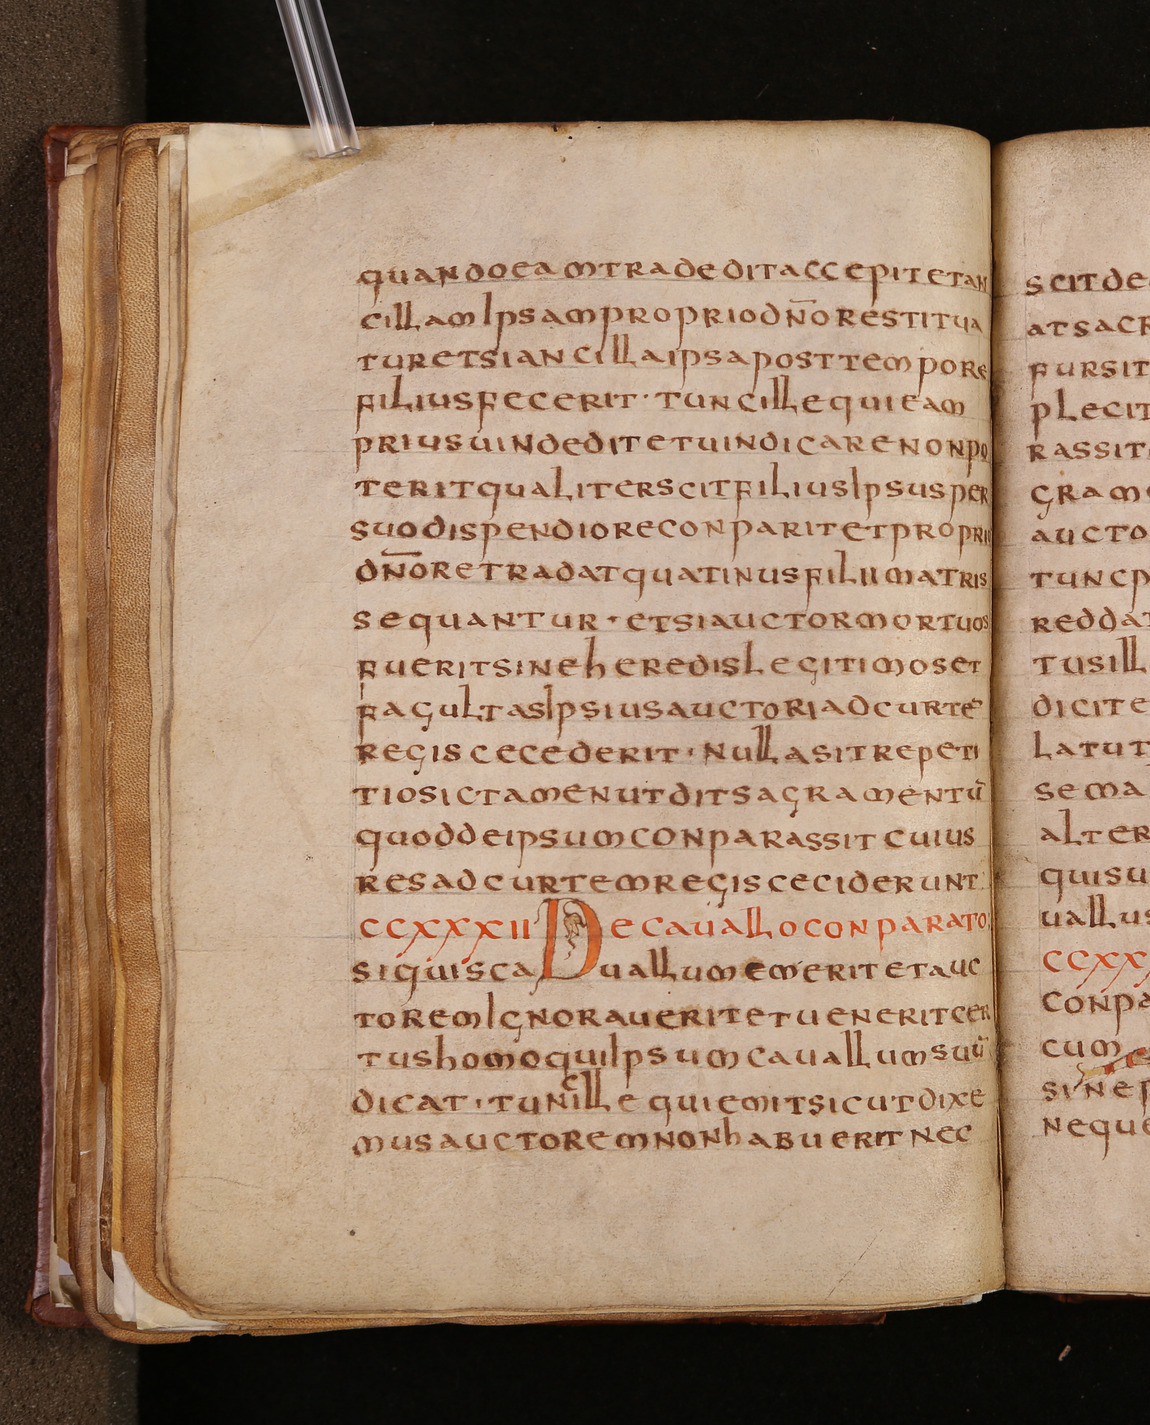 quandoeamtradeditaccepitetan
cillamipsampropriodn̄orestitua
turetsiancillaipsaposttempore
filiusfecerit·tuncillequieam
priusuindeditetuindicarenonpo
teritqualiterscitfiliusipsusper
suodispendioreconparitetproprii
dn̄oretradatquatinusfiliimatris
sequantur·etsiauctormortuos
fueritsineheredislegitimoset
facultasipsiusauctoriadcurtē
regiscecederit·nullasitrepeti
tiosictamenutditsacramentū
quoddeipsumconparassitcuius
resadcurtemregisceciderunt
CCXXXII Decaualloconparato
siquisca uallumemeritetauc
toremignoraueritetueneritcer
tushomoquiipsumcauallumsuū
dicat·tuncillequiemitsicutdixe
musauctoremnonhabueritnec
scitde
atsacr
fursit
plecit
rassit
gram
aucto
tuncp
reddat
tusill
dicite
latut
sema
alter
quisu
uallus
CCXX
conpa
cum
sines
neque